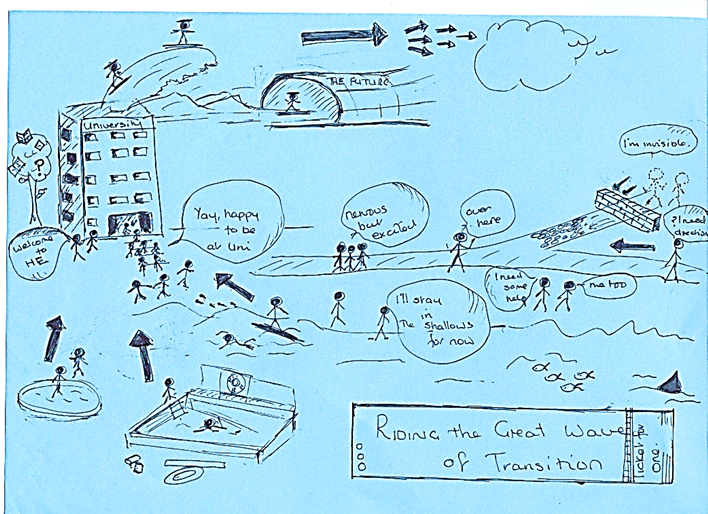 THE FUTURE
University
I'm invisible.
Welcome
to
HE
!!.
Yay, happy
to be
at Uni
nervous
but
excited
over
here
?I need
direction
I need
some
help
me too
I'll stay
in
The shallows
for now
RIDING the Great Wave
of Transition
Ticket for
One.